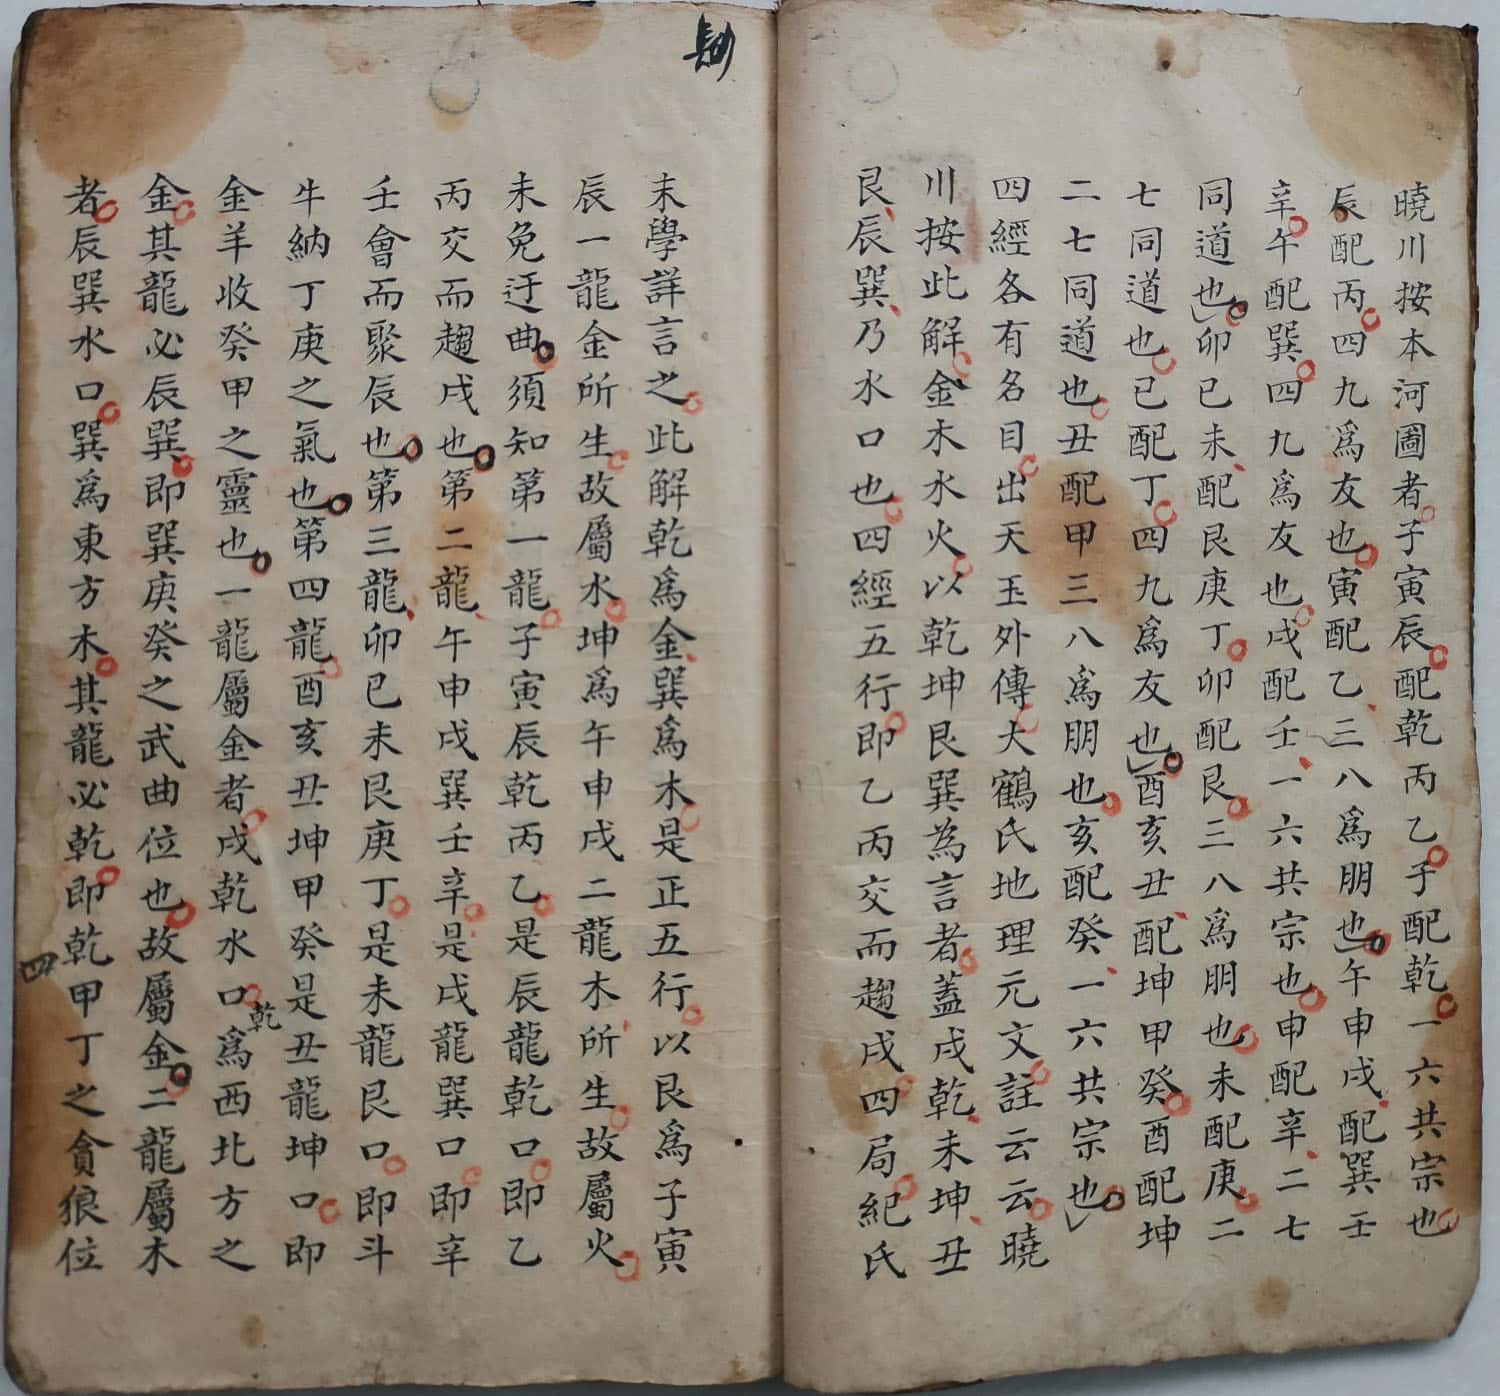 曉川按本河圖者子寅辰配乾丙乙子配乾一六共宗也
辰配丙四九爲友也寅配乙三八爲朋也午申戌配巽壬
辛午配巽四九爲友也戌配壬一六共宗也申配辛二七
同道也卯巳未配艮庚丁卯配艮三八爲朋也未配庚二
七同道也巳配丁四九爲友也酉亥丑配坤甲癸酉配坤
二七同道也丑配甲三八爲朋也亥配癸一六共宗也
四經各有名目出天玉外傳大鶴氏地理元文註云云曉
川按此解金木水火以乾坤艮巽為言者蓋戌乾未坤丑
艮辰巽乃水口也四經五行即乙丙交而趨戌四局紀氏
末學詳言之此解乾爲金巽爲木是正五行以艮爲子寅
辰一龍金所生故屬水坤爲午申戌二龍木所生故屬火
未免迂曲須知第一龍子寅辰乾丙乙是辰龍乾口即乙
丙交而趨戌也第二龍午申戌巽壬辛是戌龍巽口即辛
壬會而聚辰也第三龍卯巳未艮庚丁是未龍艮口即斗
牛納丁庚之氣也第四龍酉亥丑坤甲癸是丑龍坤口即
金羊收癸甲之靈也一龍屬金者戌乾水口乾爲西北方之
金其龍必辰巽即巽庚癸之武曲位也故屬金二龍屬木
者辰巽水口巽爲東方木其龍必乾即乾甲丁之貪狼位
四